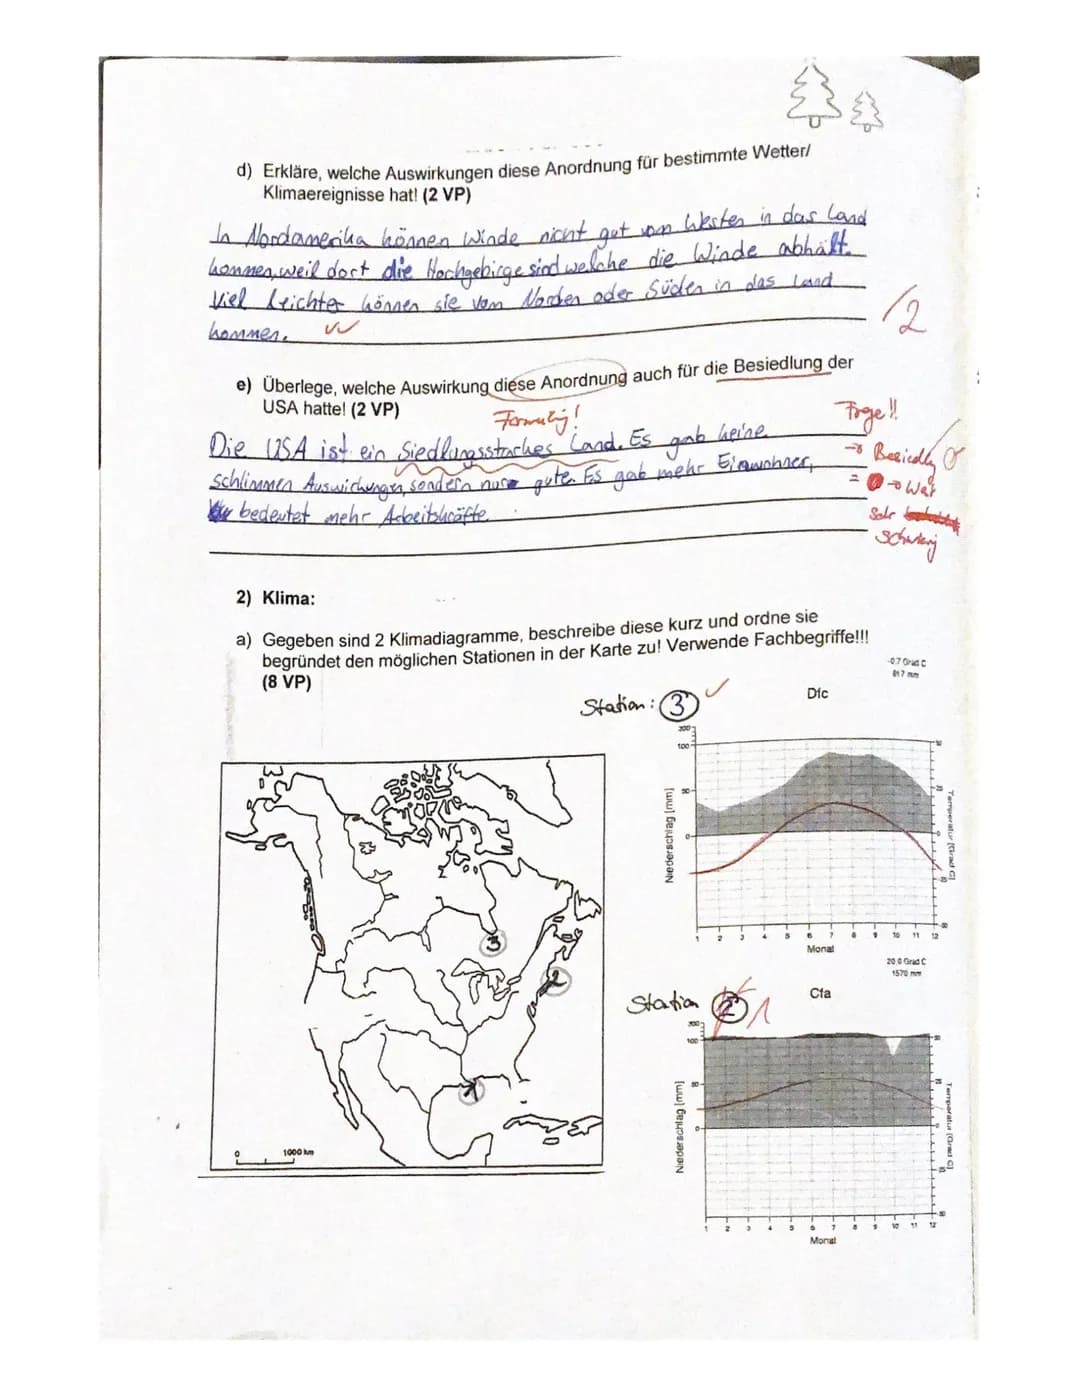 d) Erkläre, welche Auswirkungen diese Anordnung für bestimmte Wetter/
Klimaereignisse hat! (2 VP)
In Nordamerika können Winde nicht gut vom Westen in das Land
kommen, weil dort die Hochgebirge sind welche die Winde abhält.
Viel leichter können sie vom Norden oder Süden in das Land
kommen.
/2
e) Überlege, welche Auswirkung diese Anordnung auch für die Besiedlung der
USA hatte! (2 VP)
Formulierg!
Frage!!
Die USA ist ein Siedlungsstarkes Land. Es gab keine
→ Besiedlg
schlimmen Auswirkungen, sondern nur gute. Es gab mehr Einwohner,
= → War
bedeutet mehr Arbeitskräfte.
Sehr
schwierig
2) Klima:
a) Gegeben sind 2 Klimadiagramme, beschreibe diese kurz und ordne sie
begründet den möglichen Stationen in der Karte zu! Verwende Fachbegriffe!!!
(8 VP)
-0.7 Grad C
817 mm
Station: 3
Dfc
300
100
50
0
Niederschlag [mm]
Temperatur [Grad C]
1 2 3 4 5 6 7 8 9 10 11 12
Monat
3
2
1
0 1000 km
20.0 Grad C
1570 mm
Station 2 1
Cfa
300
100
50
0
Niederschlag [mm]
Temperatur [Grad C]
1 2 3 4 5 6 7 8 9 10 11 12
Monat